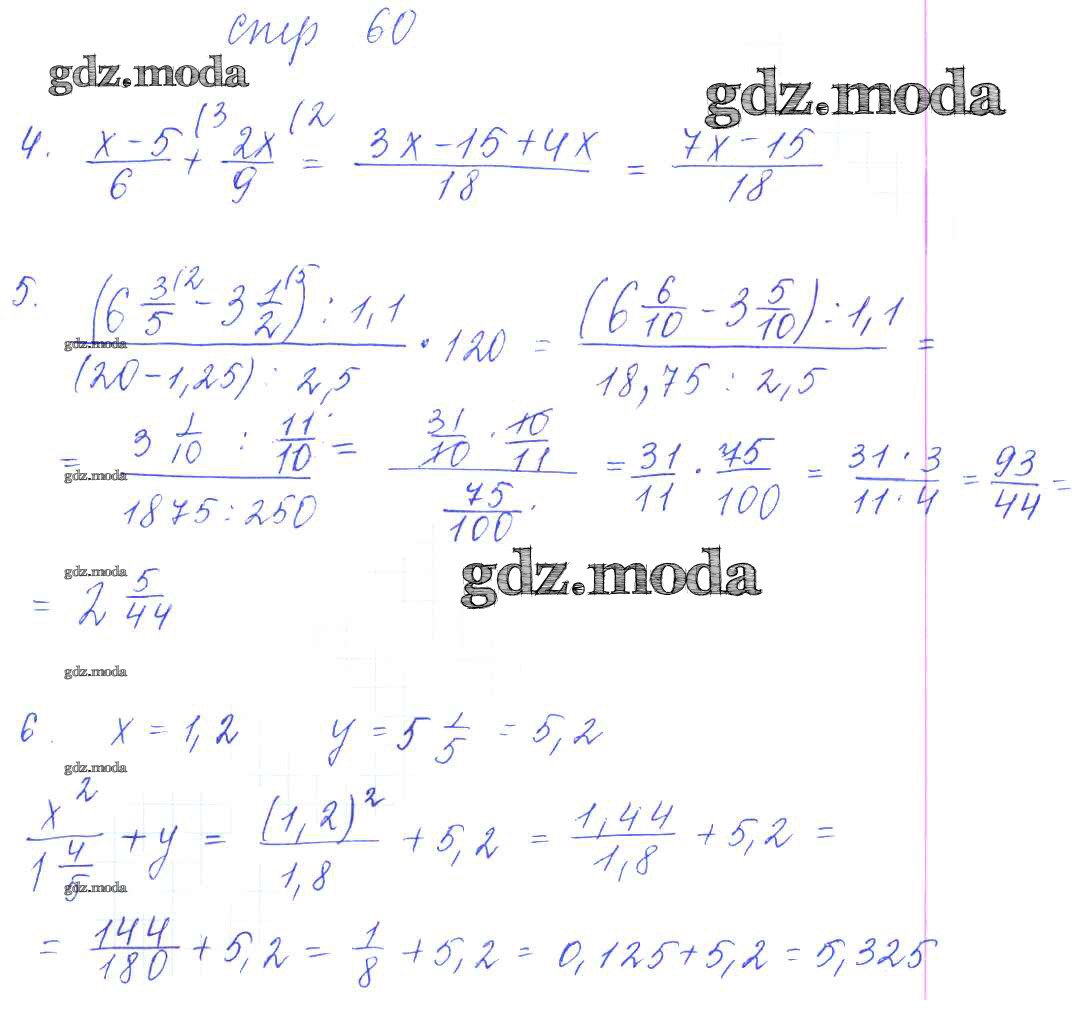 стр 60
gdz.moda gdz.moda
4. (x-5)/6 (3 + 2x/9 (2 = (3x-15+4x)/18 = (7x-15)/18
5. ((6 3/5 (2 - 3 1/2 (5) : 1,1)/((20-1,25) : 2,5) · 120 = ((6 6/10 - 3 5/10) : 1,1)/(18,75 : 2,5) =
gdz.moda
= (3 1/10 : 11/10)/(1875 : 250) = (31/10 · 10/11)/(75/100) = 31/11 · 75/100 = (31·3)/(11·4) = 93/44 =
gdz.moda
gdz.moda gdz.moda
= 2 5/44
gdz.moda
6. x = 1,2 y = 5 1/5 = 5,2
gdz.moda
x²/(1 4/5) + y = (1,2)²/1,8 + 5,2 = 1,44/1,8 + 5,2 =
gdz.moda
= 144/180 + 5,2 = 1/8 + 5,2 = 0,125 + 5,2 = 5,325